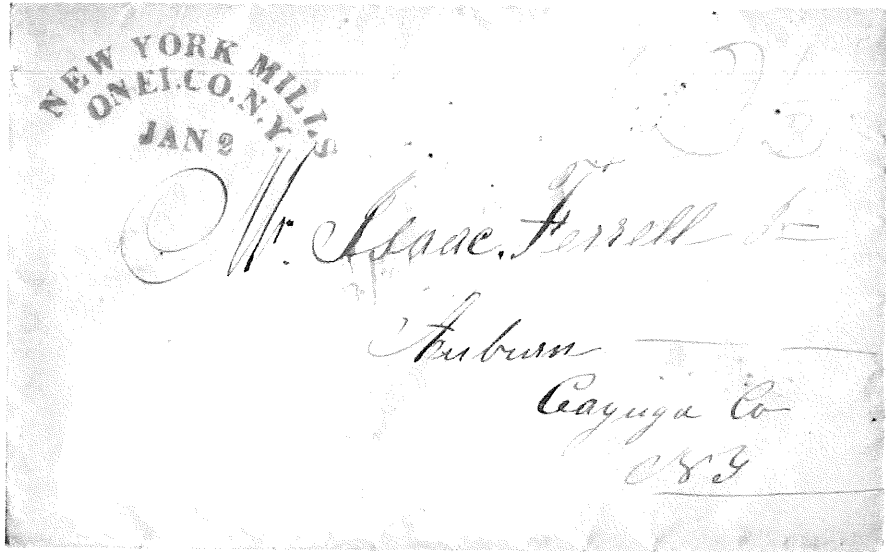 NEW YORK MILLS
ONEI.CO.N.Y.
JAN 2
Mr. Isaac. Ferrell Jr
Auburn
Cayuga Co
NY